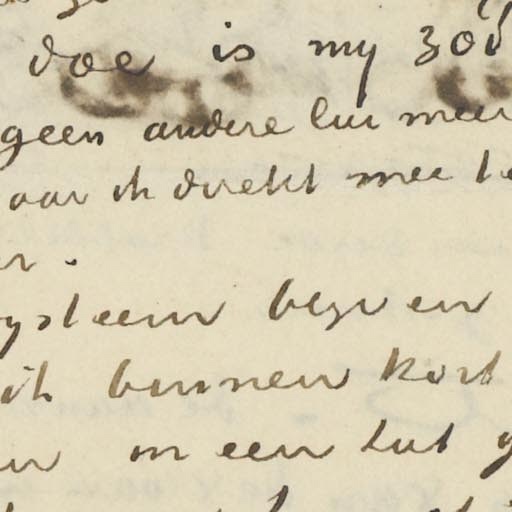 doe is my zoo
geen andere lui meer
aar ik direkt mee te
er.
ysteem blyven
ik binnen kort
en in een tut